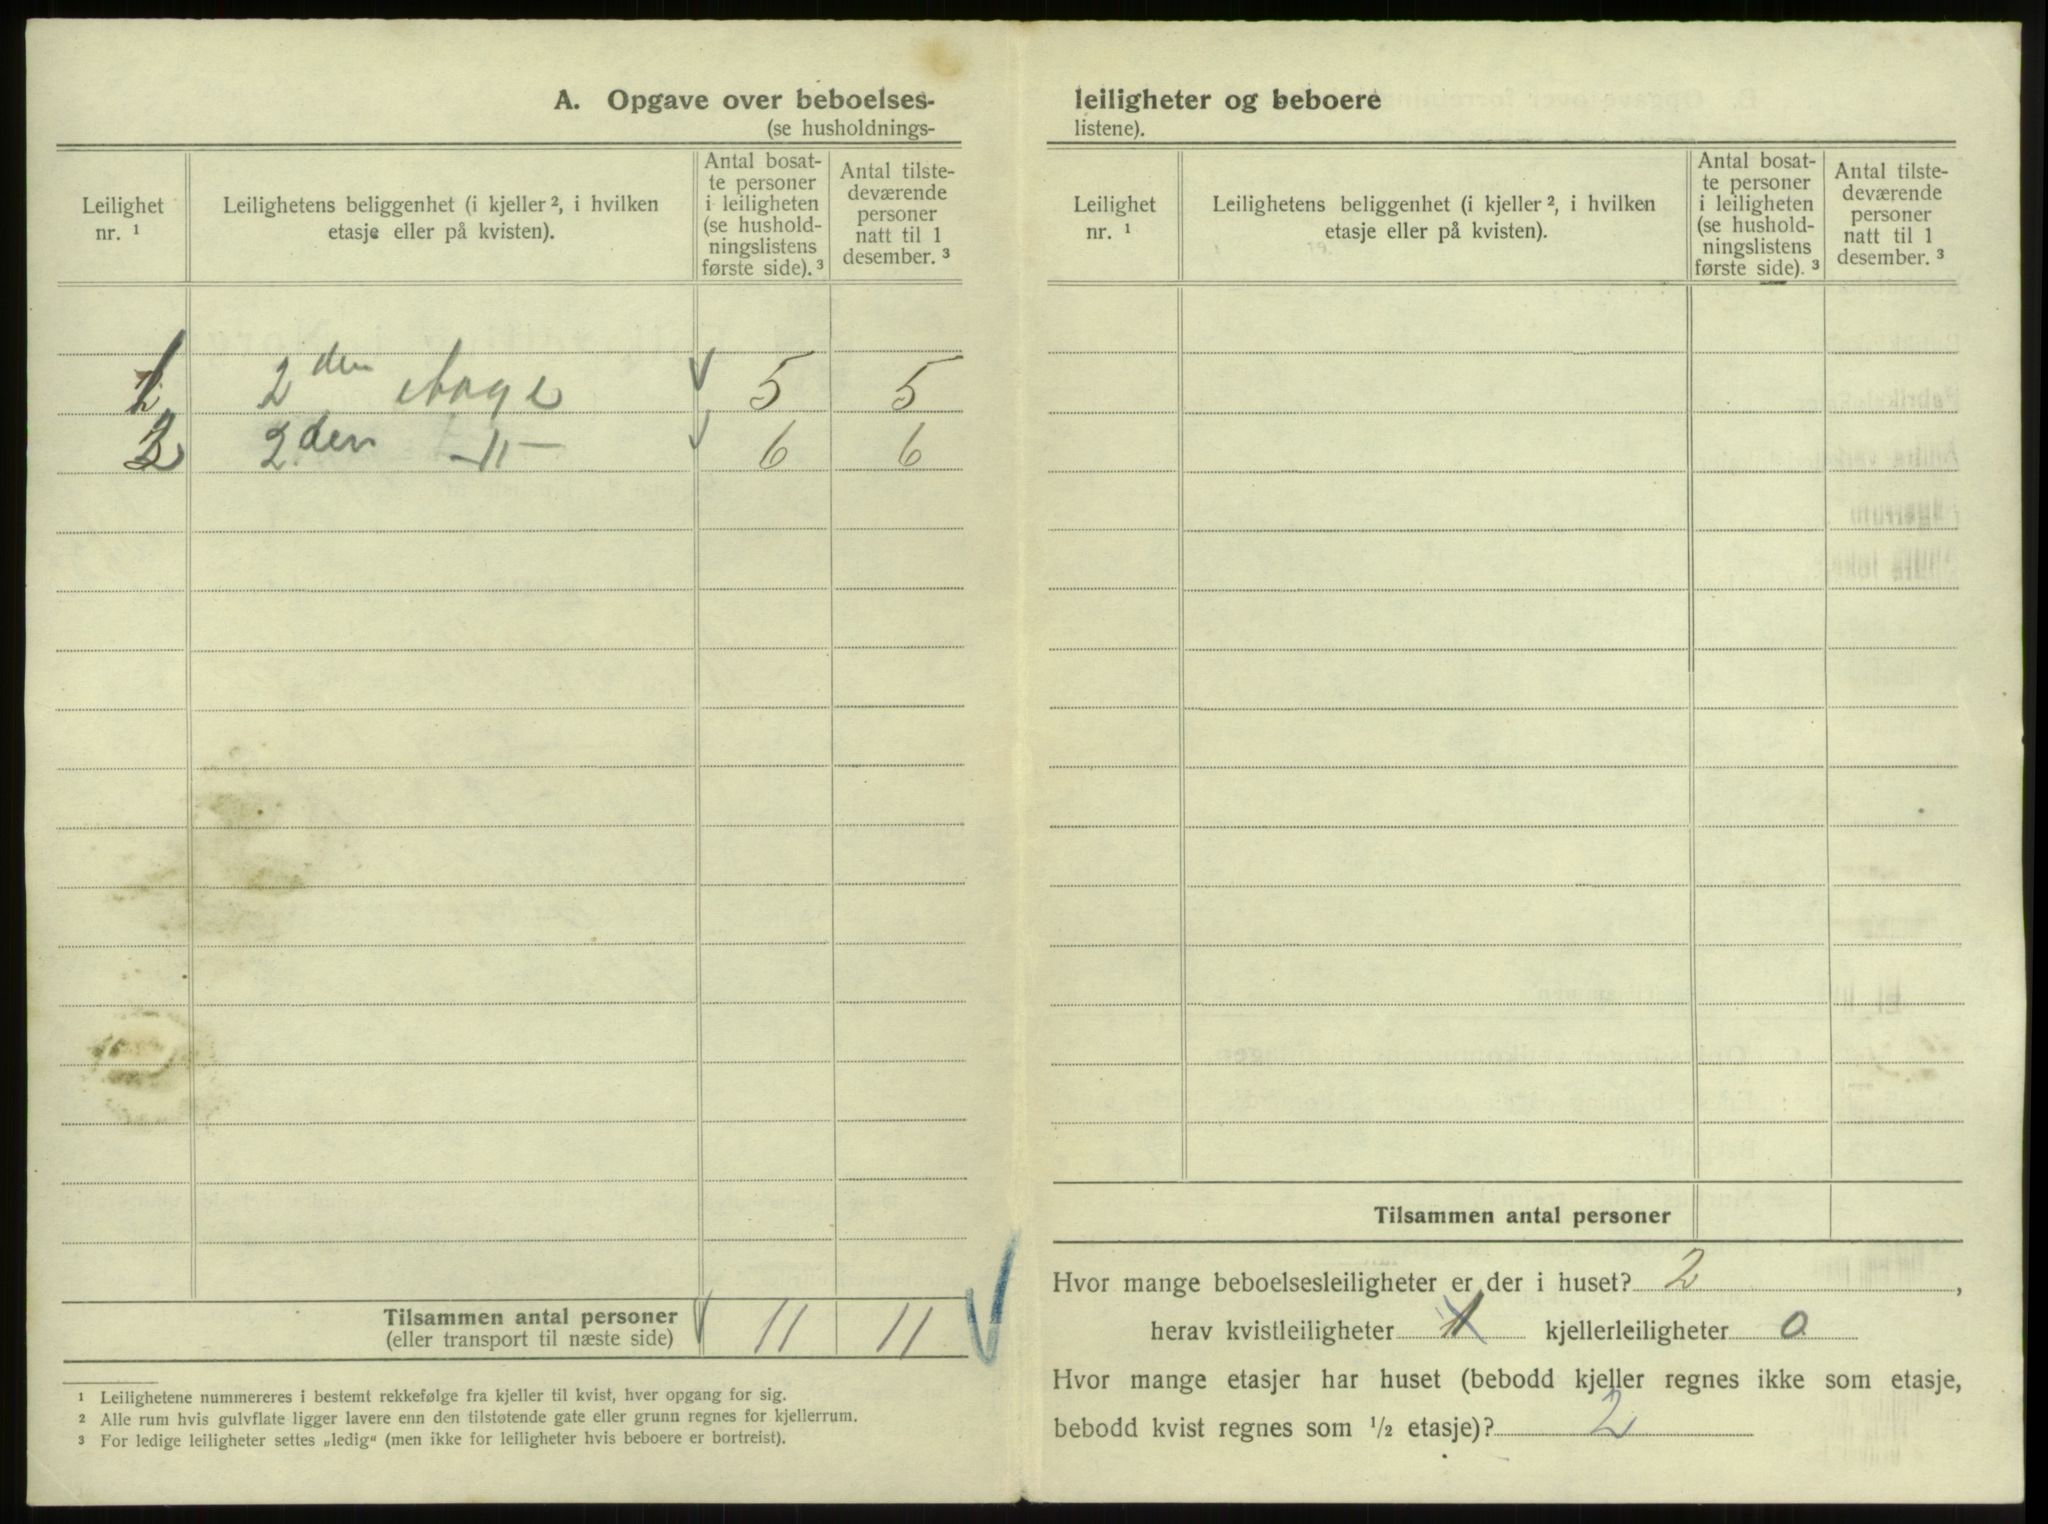 A. Opgave over beboelses-
(se husholdnings-
Leilighet nr. ¹
Leilighetens beliggenhet (i kjeller ², i hvilken etasje eller på kvisten).
Antal bosat-
te personer
i leiligheten
(se hushold-
ningslistens
første side). ³
Antal tilste-
deværende
personer
natt til 1
desember. ³
1 2den etage 5 5
2 2den -"- 6 6
Tilsammen antal personer 11 11
(eller transport til næste side)
¹ Leilighetene nummereres i bestemt rekkefølge fra kjeller til kvist, hver opgang for sig.
² Alle rum hvis gulvflate ligger lavere enn den tilstøtende gate eller grunn regnes for kjellerrum.
³ For ledige leiligheter settes „ledig“ (men ikke for leiligheter hvis beboere er bortreist).
leiligheter og beboere
listene).
Leilighet nr. ¹
Leilighetens beliggenhet (i kjeller ², i hvilken etasje eller på kvisten).
Antal bosat-
te personer
i leiligheten
(se hushold-
ningslistens
første side). ³
Antal tilste-
deværende
personer
natt til 1
desember. ³
Tilsammen antal personer
Hvor mange beboelsesleiligheter er der i huset? 2,
herav kvistleiligheter 1 kjellerleiligheter 0
Hvor mange etasjer har huset (bebodd kjeller regnes ikke som etasje,
bebodd kvist regnes som ½ etasje)? 2